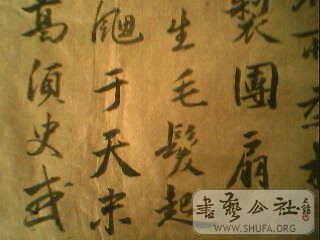 製團扇
生毛髮起
于天末
高須臾或
書藝公社
WWW.SHUFA.ORG